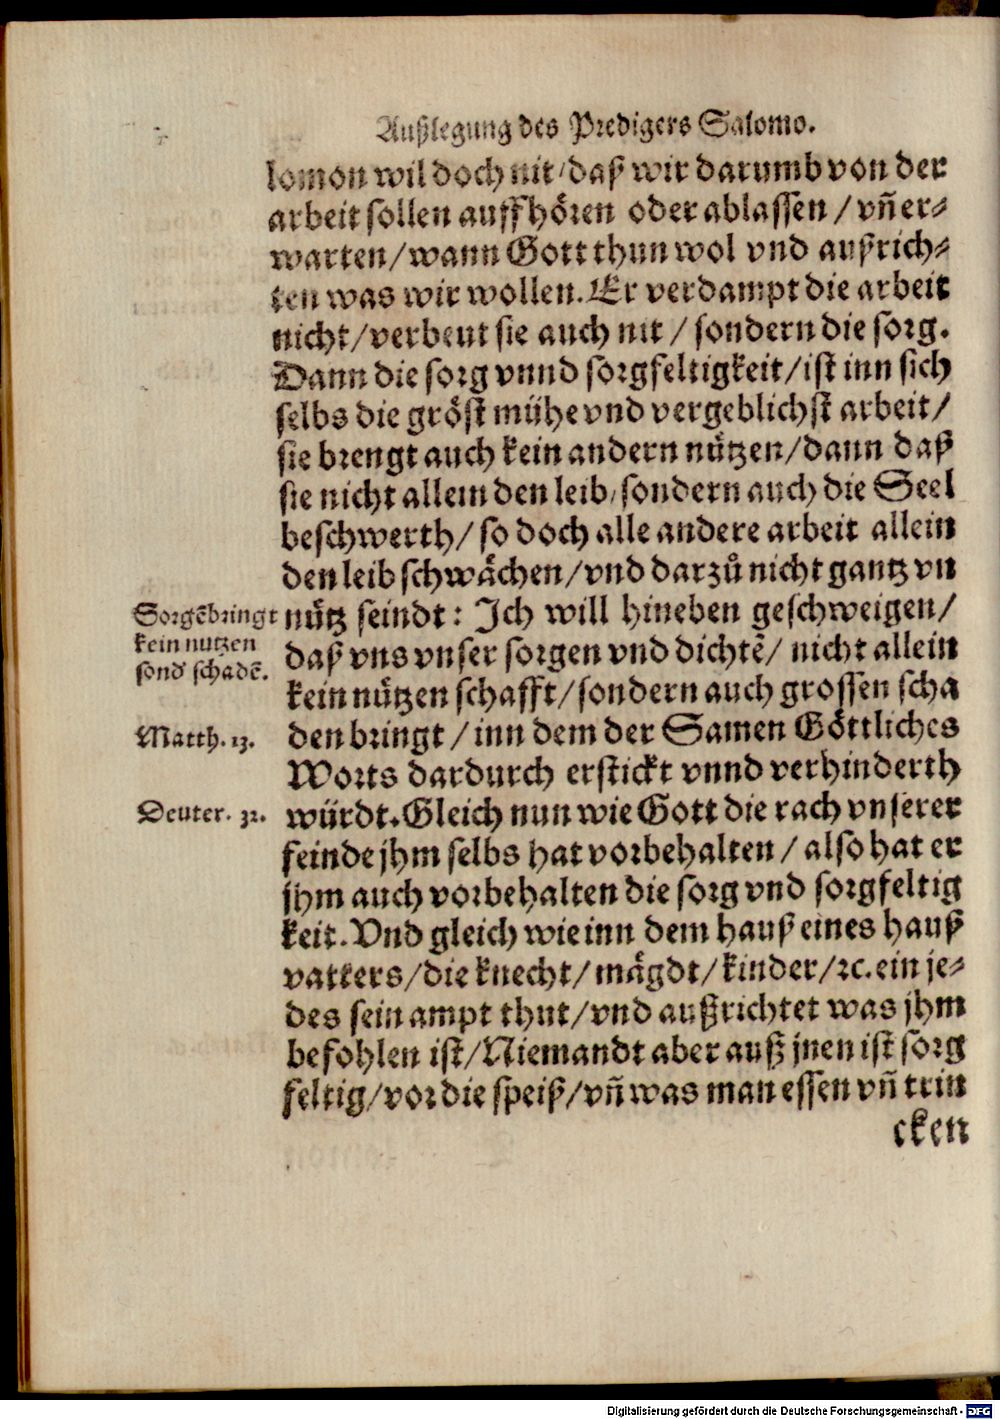 Außlegung des Predigers Salomo.
lomon wil doch nit/daß wir darumb von der
arbeit sollen auffhören oder ablassen/vñ er⸗
warten/wann Gott thun wol vnd außrich⸗
ten was wir wollen. Er verdampt die arbeit
nicht/verbeut sie auch nit/sondern die sorg.
Dann die sorg vnnd sorgfeltigkeit/ist inn sich
selbs die gröst mühe vnd vergeblichst arbeit/
sie brengt auch kein andern nützen/dann daß
sie nicht allein den leib/sondern auch die Seel
beschwerth/so doch alle andere arbeit allein
den leib schwächen/vnd darzů nicht gantz vn
Sorgẽ bringt
kein nutzen
sond' schadẽ.
nütz seindt: Ich will hineben geschweigen/
daß vns vnser sorgen vnd dichtẽ/nicht allein
kein nützen schafft/sondern auch grossen scha
Matth. 13.
den bringt/inn dem der Samen Göttliches
Worts dardurch erstickt vnnd verhinderth
Deuter. 32.
würdt. Gleich nun wie Gott die rach vnserer
feinde jhm selbs hat vorbehalten/also hat er
jhm auch vorbehalten die sorg vnd sorgfeltig
keit. Vnd gleich wie inn dem hauß eines hauß
vatters/die knecht/mägdt/kinder/ꝛc. ein je⸗
des sein ampt thut/vnd außrichtet was jhm
befohlen ist/Niemandt aber auß jnen ist sorg
feltig/vor die speiß/vñ was man essen vñ trin
cken
Digitalisierung gefördert durch die Deutsche Forschungsgemeinschaft - DFG